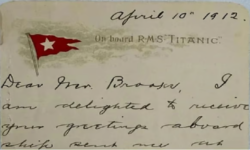 April 10th 1912.
On board R.M.S. "TITANIC"
Dear Mr. Brooks, I
am delighted to receive
your greetings aboard
ship send me at